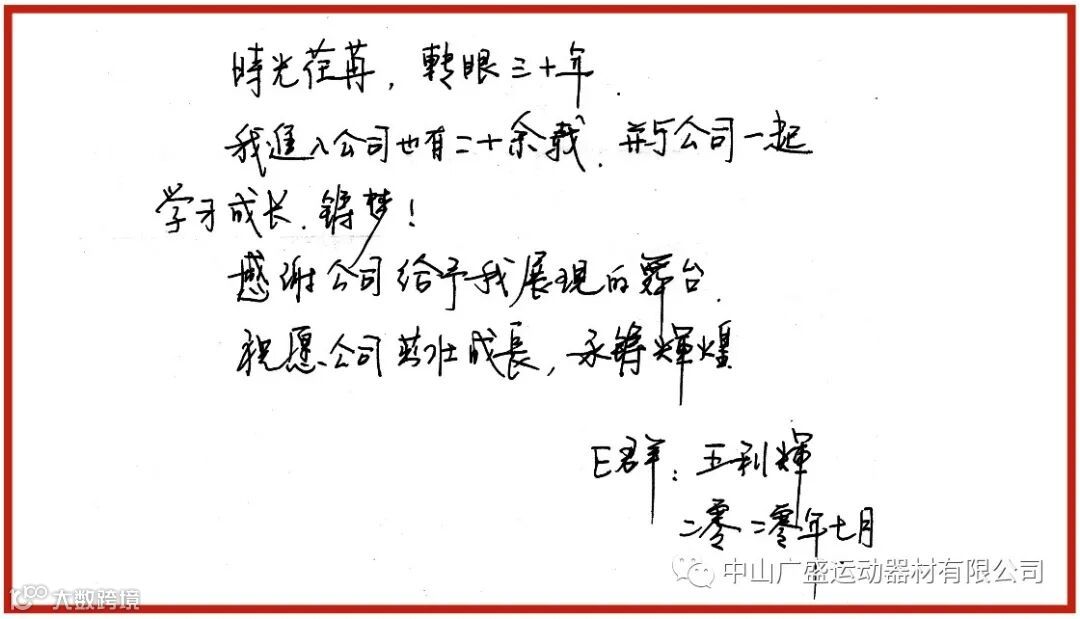 時光荏苒，轉眼三十年.
我進入公司也有二十余载.并与公司一起
学习成长.铸梦!
感谢公司给予我展現的舞台.
祝愿公司茁壮成長，永铸輝煌
E群：王利輝
二零二零年七月
中山广盛运动器材有限公司
大数跨境